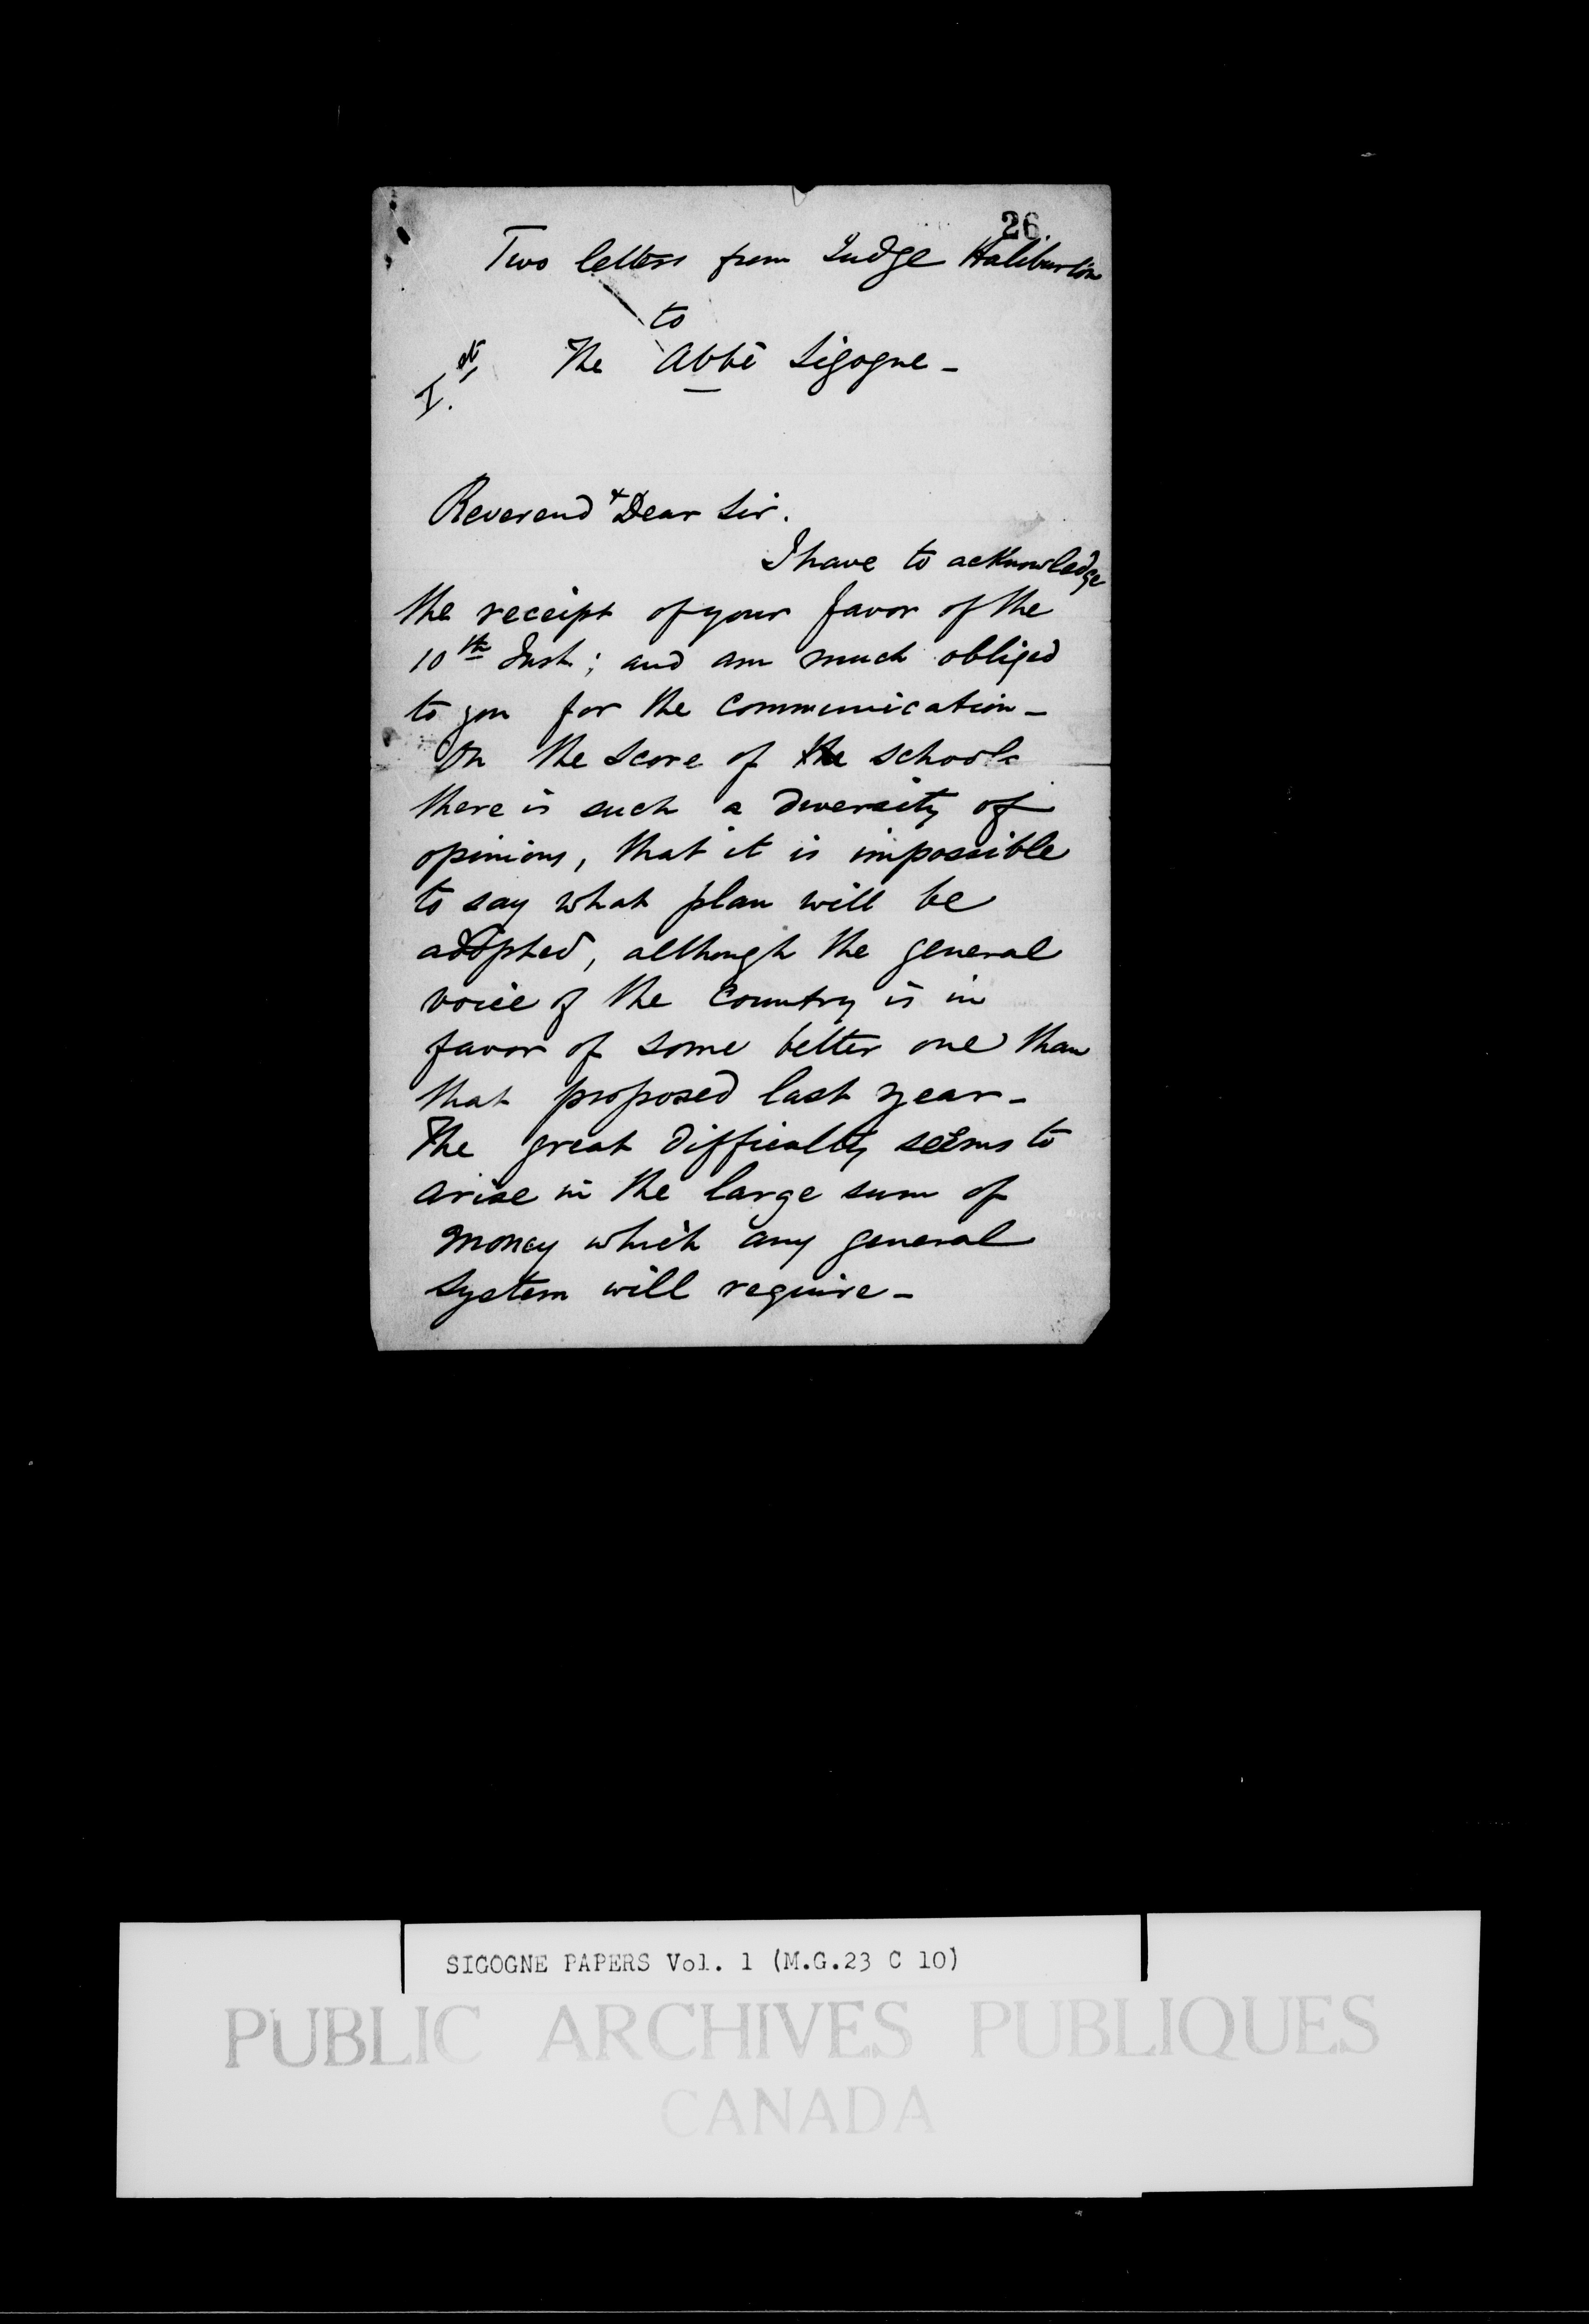 26.
Two letters from Judge Haliburton
to
The Abbé Sigogne -
I.st
Reverend & Dear Sir.
I have to acknowledge
the receipt of your favor of the
10th Inst; and am much obliged
to you for the communication -
On the score of the schools
there is such a diversity of
opinions, that it is impossible
to say what plan will be
adopted, although the general
voice of the country is in
favor of some better one than
that proposed last year -
The great difficulty seems to
arise in the large sum of
money which any general
system will require -
SIGOGNE PAPERS Vol. 1 (M.G.23 C 10)
PUBLIC ARCHIVES PUBLIQUES
CANADA